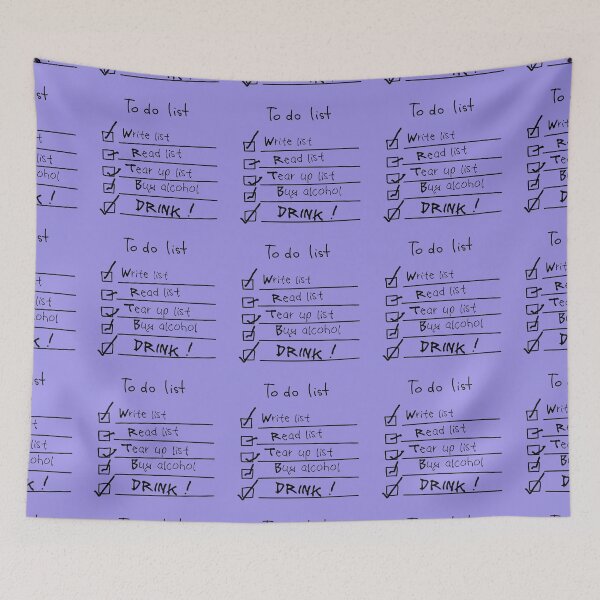 To do list
Write list
Read list
Tear up list
Buy alcohol
DRINK!
To do list
Write list
Read list
Tear up list
Buy alcohol
DRINK!
To do list
Write list
Read list
Tear up list
Buy alcohol
DRINK!
To do
Write
Tear
Buy
To do list
Write list
Read list
Tear up list
Buy alcohol
DRINK!
To do list
Write list
Read list
Tear up list
Buy alcohol
DRINK!
To do list
Write list
Read list
Tear up list
Buy alcohol
DRINK!
To do
Write
Tear
Buy
To do list
Write list
Read list
Tear up list
Buy alcohol
DRINK!
To do list
Write list
Read list
Tear up list
Buy alcohol
DRINK!
To do list
Write list
Read list
Tear up list
Buy alcohol
DRINK!
To do
Write
Tear
Buy